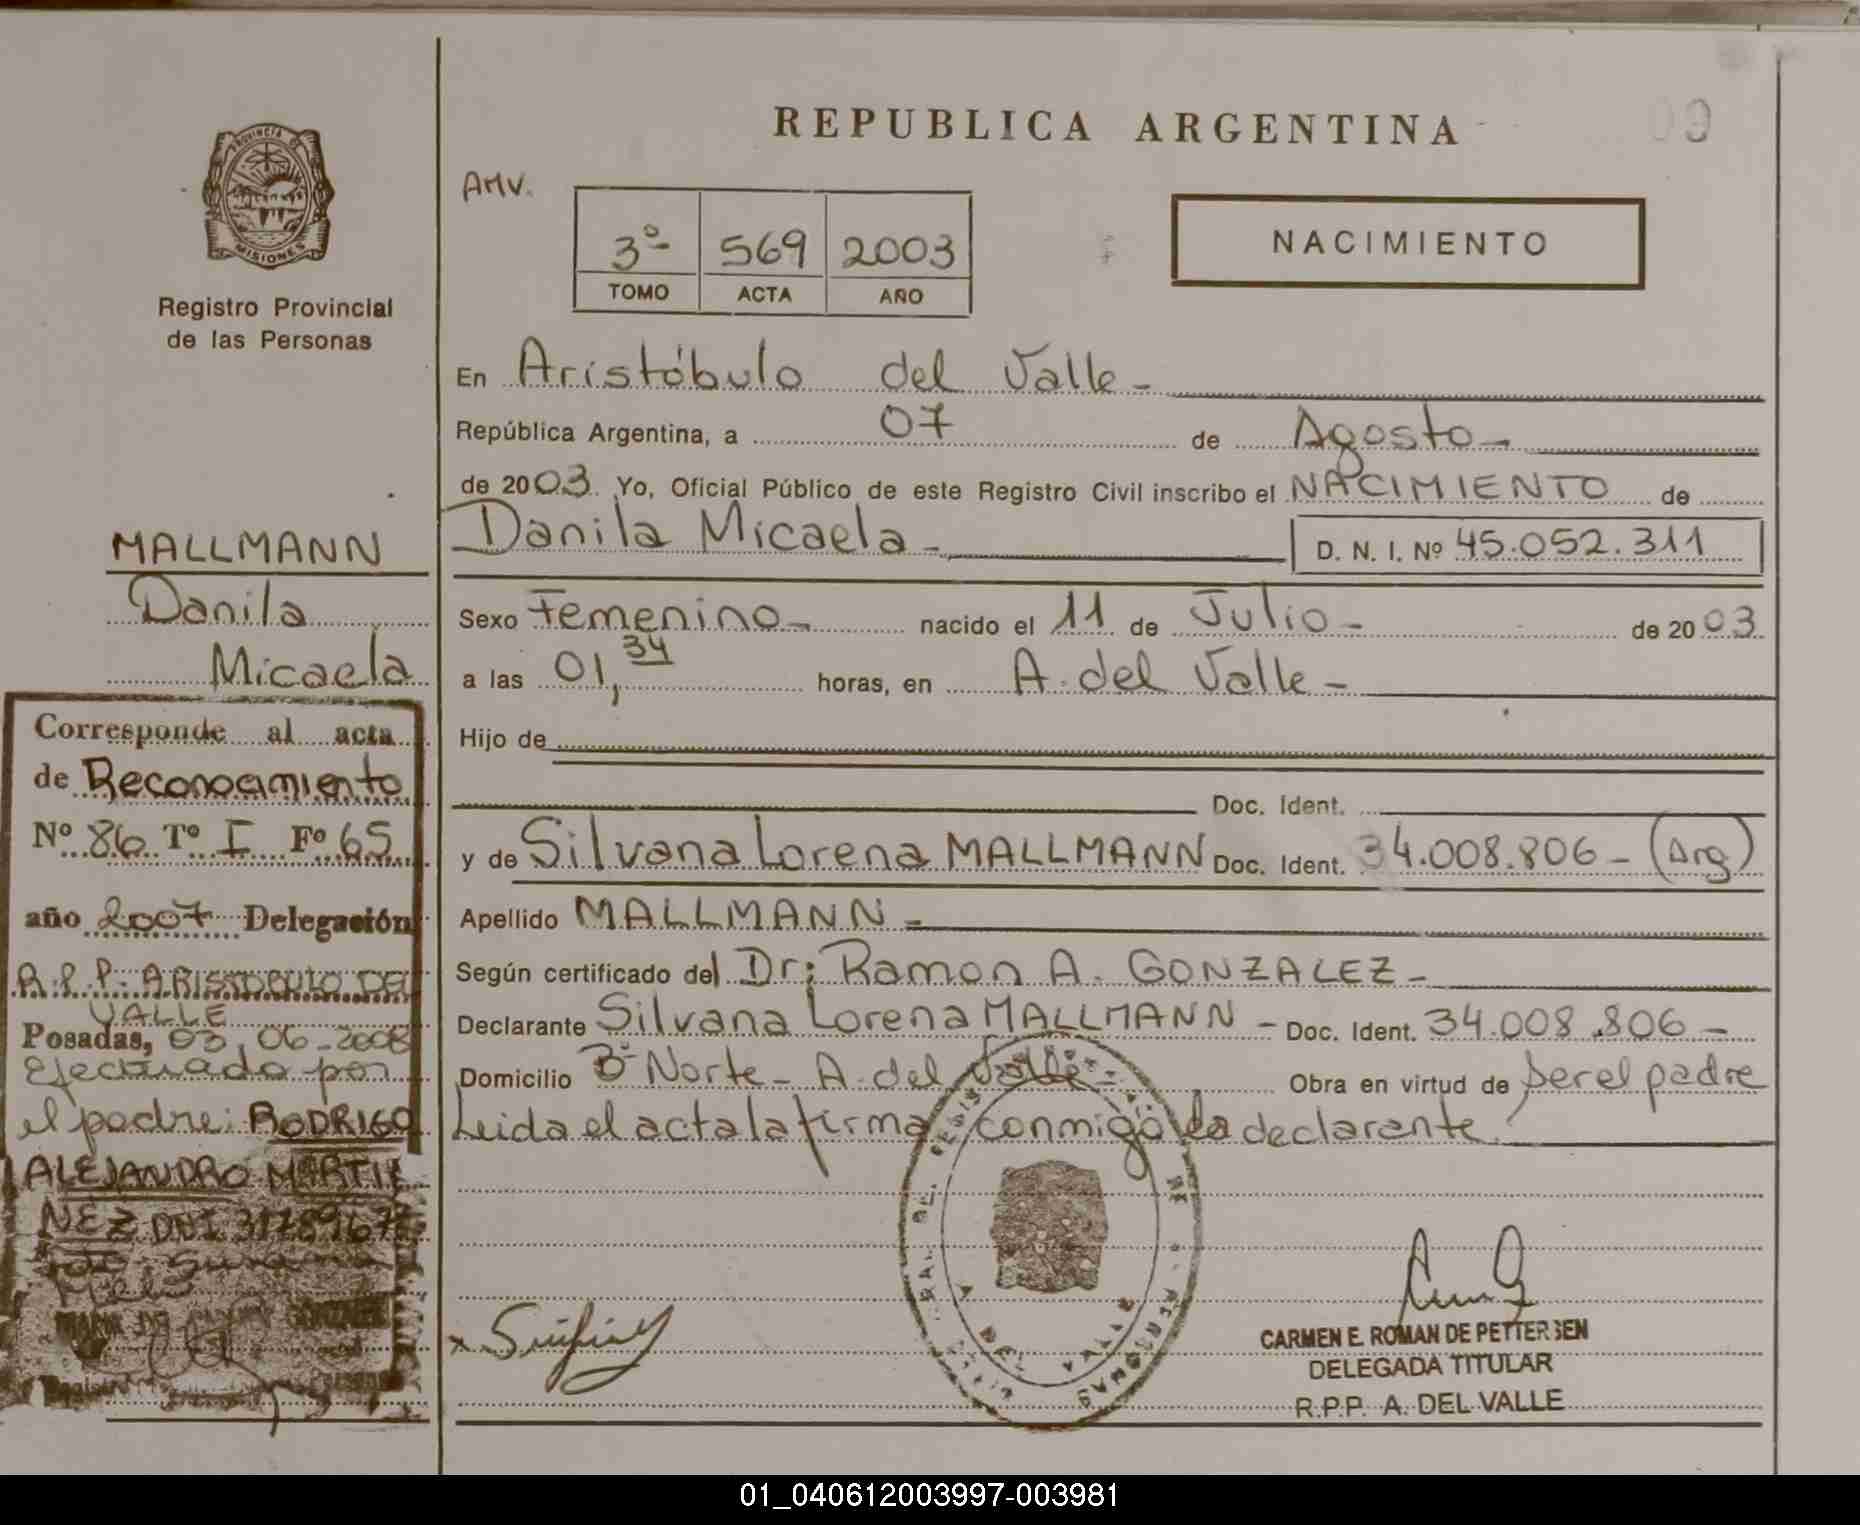 PROVINCIA DE
MISIONES
Registro Provincial
de las Personas
MALLMANN
Danila
Micaela
Corresponde al acta
de Reconocimiento
Nº 86 Tº I Fº 65
año 2007 Delegación
R.P.P. ARISTOBULO DEL
VALLE
Posadas, 03, 06-2008
Efectuado por
el padre: RODRIGO
ALEJANDRO MARTI
NEZ DNI 31789677
REPUBLICA ARGENTINA
09
AMV.
3º 569 2003
TOMO ACTA AÑO
NACIMIENTO
En Aristóbulo del Valle-
República Argentina, a 07 de Agosto-
de 2003. Yo, Oficial Público de este Registro Civil inscribo el NACIMIENTO de
Danila Micaela-
D. N. I. Nº 45.052.311
Sexo Femenino- nacido el 11 de Julio- de 2003
a las 01,34 horas, en A. del Valle-
Hijo de
Doc. Ident.
y de Silvana Lorena MALLMANN Doc. Ident. 34.008.806- (Arg)
Apellido MALLMANN-
Según certificado del Dr: Ramon A. GONZALEZ-
Declarante Silvana Lorena MALLMANN- Doc. Ident. 34.008.806-
Domicilio Bº Norte- A. del Valle- Obra en virtud de ser el padre
Leida el acta la firma conmigo la declarante.
CARMEN E. ROMAN DE PETTERSEN
DELEGADA TITULAR
R.P.P. A. DEL VALLE
01_040612003997-003981